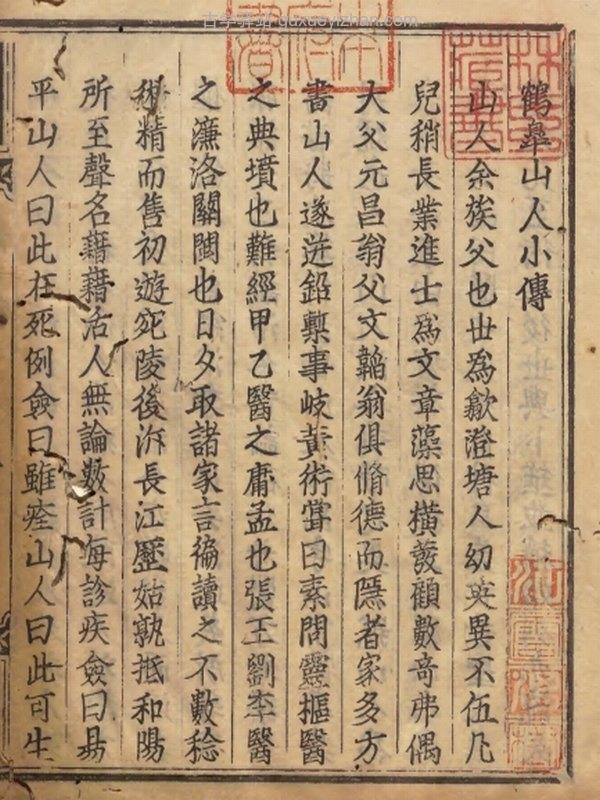 鶴臯山人小傳
山人余族父也世為歙澄塘人幼英異不伍凡
兒稍長業進士為文章藻思橫發顧數奇弗偶
大父元昌翁父文韜翁俱脩德而隱者家多方
書山人遂迸鉛槧事岐黃術嘗曰素問靈樞醫
之典墳也難經甲乙醫之庸孟也張王劉李醫
之濂洛關閩也日夕取諸家言徧讀之不數稔
術精而售初遊宛陵後泝長江歷姑孰抵和陽
所至聲名藉藉活人無論數計每診疾僉曰易
平山人曰此在死例僉曰難痊山人曰此可生
古學驛站 guxueyizhan.com